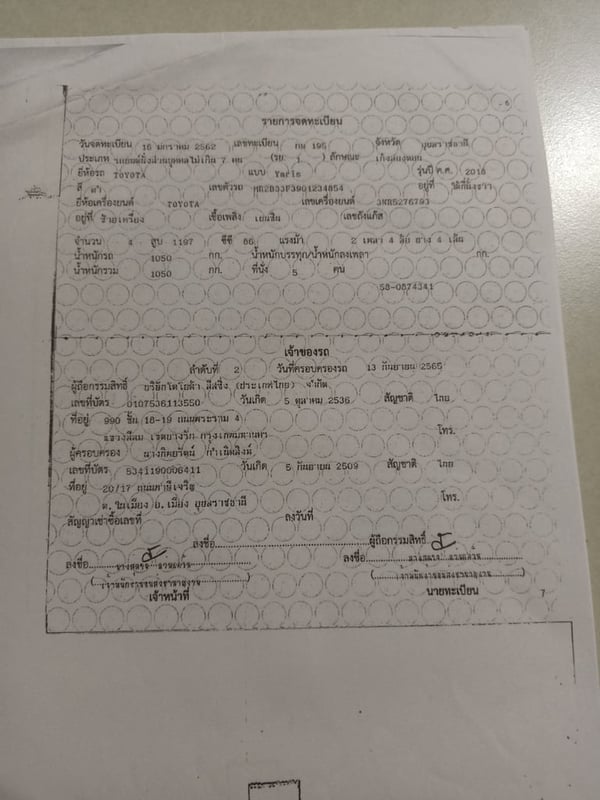 6
รายการจดทะเบียน
วันจดทะเบียน 15 มกราคม 2562 เลขทะเบียน กท 195 จังหวัด อุบลราชธานี
ประเภท รถยนต์นั่งส่วนบุคคลไม่เกิน 7 คน (รย. 1 ) ลักษณะ เก๋งสองตอน
ยี่ห้อรถ TOYOTA แบบ Yaris รุ่นปี ค.ศ. 2018
สี ดำ เลขตัวรถ MR2B33F3901234854 อยู่ที่
ยี่ห้อเครื่องยนต์ TOYOTA เลขเครื่องยนต์ 3NR5276793
อยู่ที่ ข้างเครื่อง เชื้อเพลิง เบนซิน เลขถังแก๊ส
จำนวน 4 สูบ 1197 ซีซี 86 แรงม้า 2 เพลา 4 ล้อ ยาง 4 เส้น
น้ำหนักรถ 1050 กก. น้ำหนักบรรทุก/น้ำหนักลงเพลา กก.
น้ำหนักรวม 1050 กก. ที่นั่ง 5 คน
58-0874341
เจ้าของรถ
ลำดับที่ 2 วันที่ครอบครองรถ 13 กันยายน 2565
ผู้ถือกรรมสิทธิ์ บริษัทโตโยต้า ลีสซิ่ง (ประเทศไทย) จำกัด
เลขที่บัตร 0107536113550 วันเกิด 5 ตุลาคม 2536 สัญชาติ ไทย
ที่อยู่ 990 ชั้น 18-19 ถนนพระราม 4
แขวงสีลม เขตบางรัก กรุงเทพมหานคร โทร.
ผู้ครอบครอง
เลขที่บัตร 5341190006411 วันเกิด 5 กันยายน 2509 สัญชาติ ไทย
ที่อยู่ 20/17
ต.ในเมือง อ.เมือง อุบลราชธานี โทร.
สัญญาเช่าซื้อเลขที่ ลงวันที่
ลงชื่อ ผู้ถือกรรมสิทธิ์
ลงชื่อ ลงชื่อ
เจ้าหน้าที่ นายทะเบียน
7